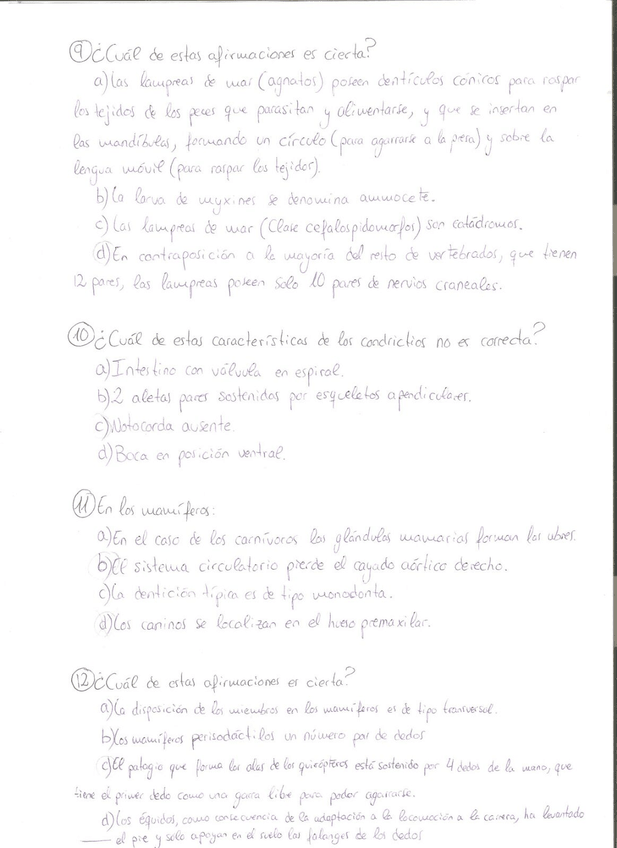 9 ¿Cuál de estas afirmaciones es cierta?
a) Las lampreas de mar (agnatos) poseen dentículos cónicos para raspar
los tejidos de los peces que parasitan y alimentarse, y que se insertan en
las mandíbulas, formando un círculo (para agarrarse a la presa) y sobre la
lengua móvil (para raspar los tejidos).
b) La larva de myxines se denomina ammocete.
c) Las lampreas de mar (Clase cefalospidomorfos) son catádromos.
d) En contraposición a la mayoría del resto de vertebrados, que tienen
12 pares, las lampreas poseen solo 10 pares de nervios craneales.
10 ¿Cuál de estas características de los condrictios no es correcta?
a) Intestino con válvula en espiral.
b) 2 aletas pares sostenidos por esqueletos apendiculares.
c) Notocorda ausente.
d) Boca en posición ventral.
11 En los mamíferos:
a) En el caso de los carnívoros las glándulas mamarias forman las ubres.
b) El sistema circulatorio pierde el cayado aórtico derecho.
c) La dentición típica es de tipo monodonta.
d) Los caninos se localizan en el hueso premaxilar.
12 ¿Cuál de estas afirmaciones es cierta?
a) La disposición de los miembros en los mamíferos es de tipo transversal.
b) Los mamíferos perisodáctilos un número par de dedos
c) El patagio que forma las alas de los quirópteros está sostenido por 4 dedos de la mano, que
tiene el primer dedo como una garra libre para poder agarrarse.
d) Los équidos, como consecuencia de la adaptación a la locomoción a la carrera, ha levantado
el pie y solo apoyan en el suelo las falanges de los dedos